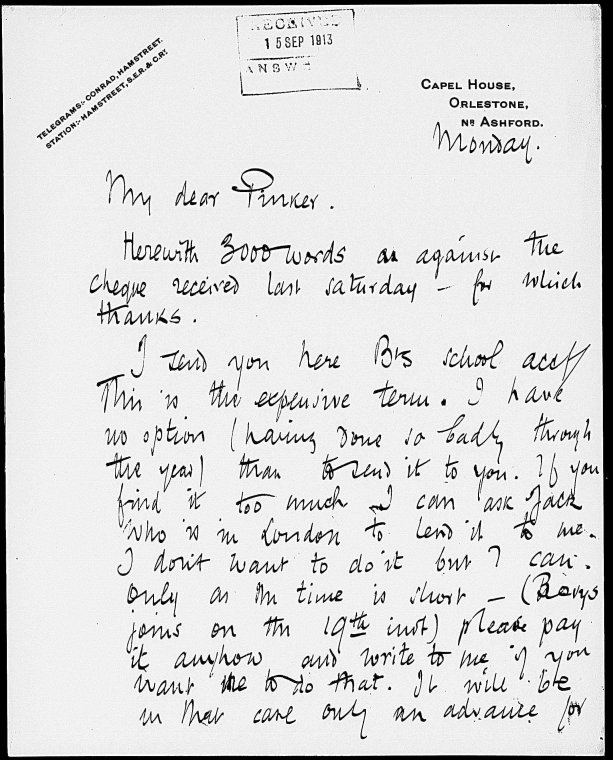 RECEIVED
15 SEP 1913
ANSWE
TELEGRAMS:- CONRAD, HAMSTREET.
STATION:- HAMSTREET, S.E.R. & C.RY.
CAPEL HOUSE,
ORLESTONE,
NR ASHFORD.
Monday.
My dear Pinker.
Herewith 3000 words as against the
cheque received last saturday – for which
thanks.
I send you here B's school acct/
This is the expensive term. I have
no option (having done so badly through
the year) than to send it to you. If you
find it too much I can ask Jack
who is in London to lend it to me.
I don't want to do it but I can.
Only as the time is short – (Borys
joins on the 19th inst) please pay
it anyhow and write to me if you
want me to do that. It will be
in that case only an advance for